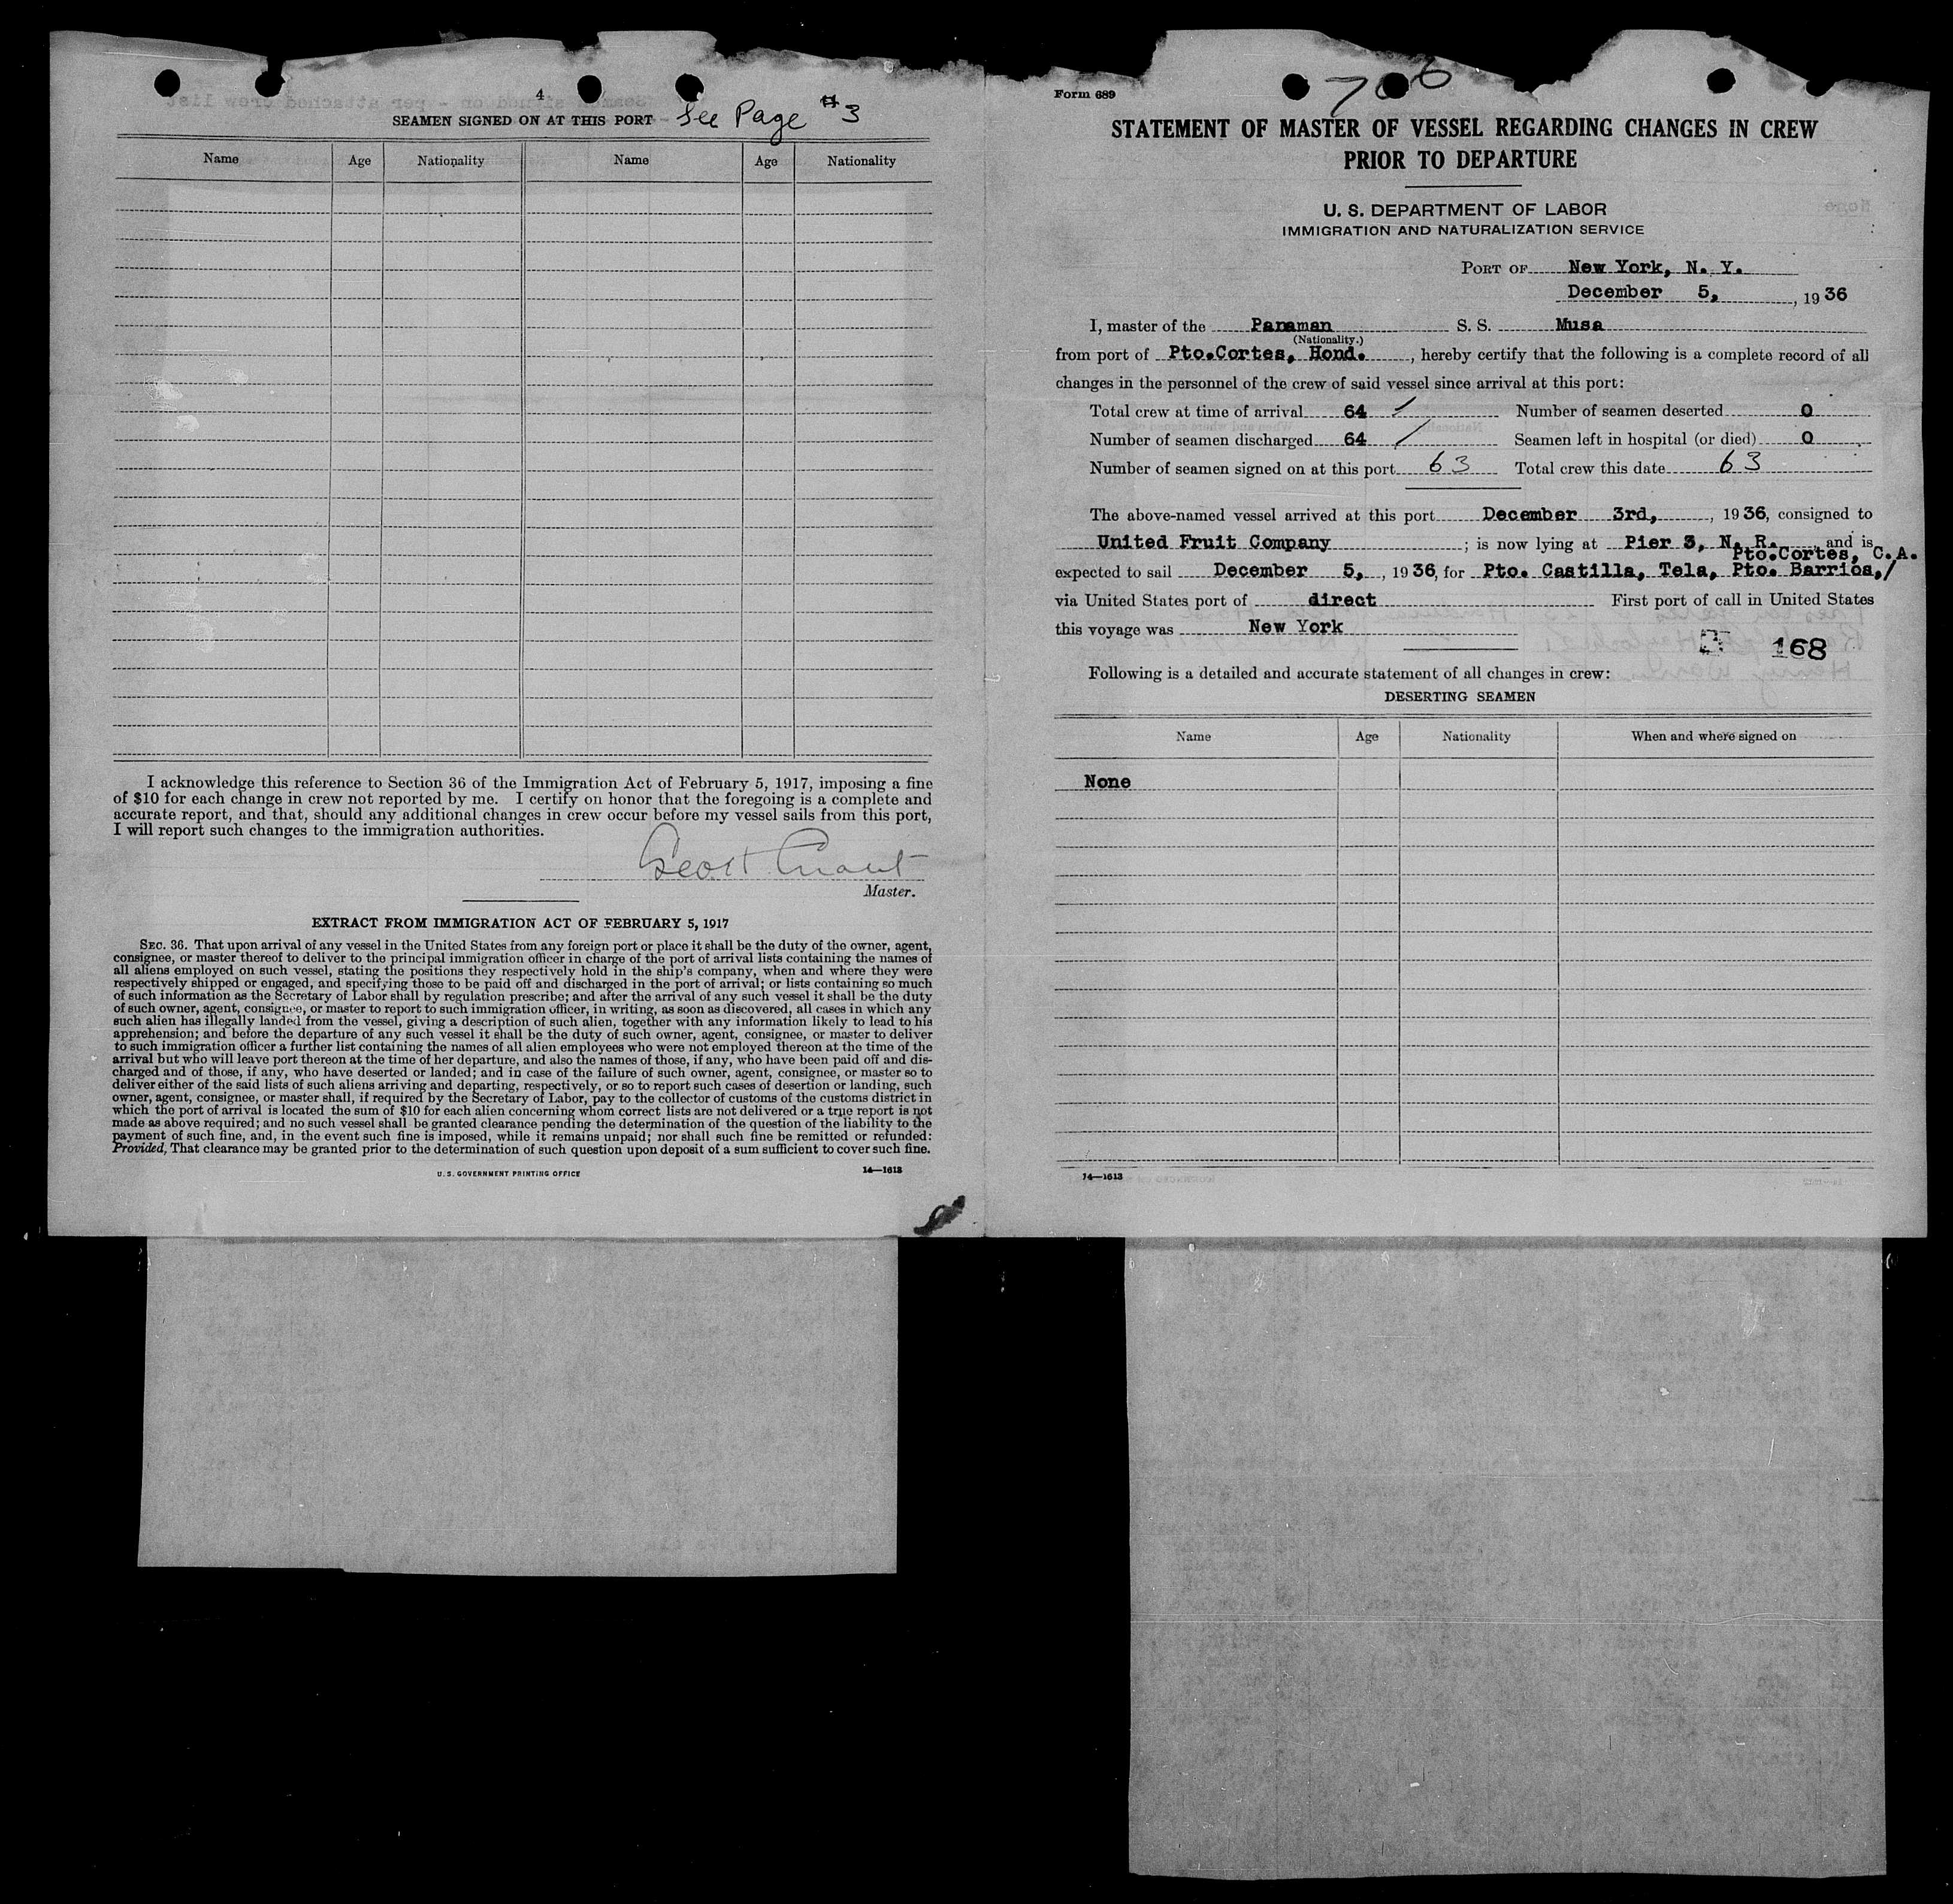 4
SEAMEN SIGNED ON AT THIS PORT See Page #3
Name Age Nationality Name Age Nationality
I acknowledge this reference to Section 36 of the Immigration Act of February 5, 1917, imposing a fine
of $10 for each change in crew not reported by me. I certify on honor that the foregoing is a complete and
accurate report, and that, should any additional changes in crew occur before my vessel sails from this port,
I will report such changes to the immigration authorities.
Geo H Grant
Master.
EXTRACT FROM IMMIGRATION ACT OF FEBRUARY 5, 1917
SEC. 36. That upon arrival of any vessel in the United States from any foreign port or place it shall be the duty of the owner, agent,
consignee, or master thereof to deliver to the principal immigration officer in charge of the port of arrival lists containing the names of
all aliens employed on such vessel, stating the positions they respectively hold in the ship's company, when and where they were
respectively shipped or engaged, and specifying those to be paid off and discharged in the port of arrival; or lists containing so much
of such information as the Secretary of Labor shall by regulation prescribe; and after the arrival of any such vessel it shall be the duty
of such owner, agent, consignee, or master to report to such immigration officer, in writing, as soon as discovered, all cases in which any
such alien has illegally landed from the vessel, giving a description of such alien, together with any information likely to lead to his
apprehension; and before the departure of any such vessel it shall be the duty of such owner, agent, consignee, or master to deliver
to such immigration officer a further list containing the names of all alien employees who were not employed thereon at the time of the
arrival but who will leave port thereon at the time of her departure, and also the names of those, if any, who have been paid off and dis-
charged and of those, if any, who have deserted or landed; and in case of the failure of such owner, agent, consignee, or master so to
deliver either of the said lists of such aliens arriving and departing, respectively, or so to report such cases of desertion or landing, such
owner, agent, consignee, or master shall, if required by the Secretary of Labor, pay to the collector of customs of the customs district in
which the port of arrival is located the sum of $10 for each alien concerning whom correct lists are not delivered or a true report is not
made as above required; and no such vessel shall be granted clearance pending the determination of the question of the liability to the
payment of such fine, and, in the event such fine is imposed, while it remains unpaid; nor shall such fine be remitted or refunded:
Provided, That clearance may be granted prior to the determination of such question upon deposit of a sum sufficient to cover such fine.
U. S. GOVERNMENT PRINTING OFFICE 14—1613
Form 689
706
STATEMENT OF MASTER OF VESSEL REGARDING CHANGES IN CREW
PRIOR TO DEPARTURE
U. S. DEPARTMENT OF LABOR
IMMIGRATION AND NATURALIZATION SERVICE
PORT OF New York, N. Y.
December 5, , 1936
I, master of the Panaman S. S. Musa
(Nationality.)
from port of Pto.Cortes, Hond. , hereby certify that the following is a complete record of all
changes in the personnel of the crew of said vessel since arrival at this port:
Total crew at time of arrival 64 Number of seamen deserted 0
Number of seamen discharged 64 Seamen left in hospital (or died) 0
Number of seamen signed on at this port 63 Total crew this date 63
The above-named vessel arrived at this port December 3rd, , 1936, consigned to
United Fruit Company ; is now lying at Pier 3, N. R. , and is
Pto.Cortes, C.A.
expected to sail December 5, , 1936, for Pto. Castilla, Tela, Pto. Barrios,/
via United States port of direct First port of call in United States
this voyage was New York
168
Following is a detailed and accurate statement of all changes in crew:
DESERTING SEAMEN
Name Age Nationality When and where signed on
None
14—1613